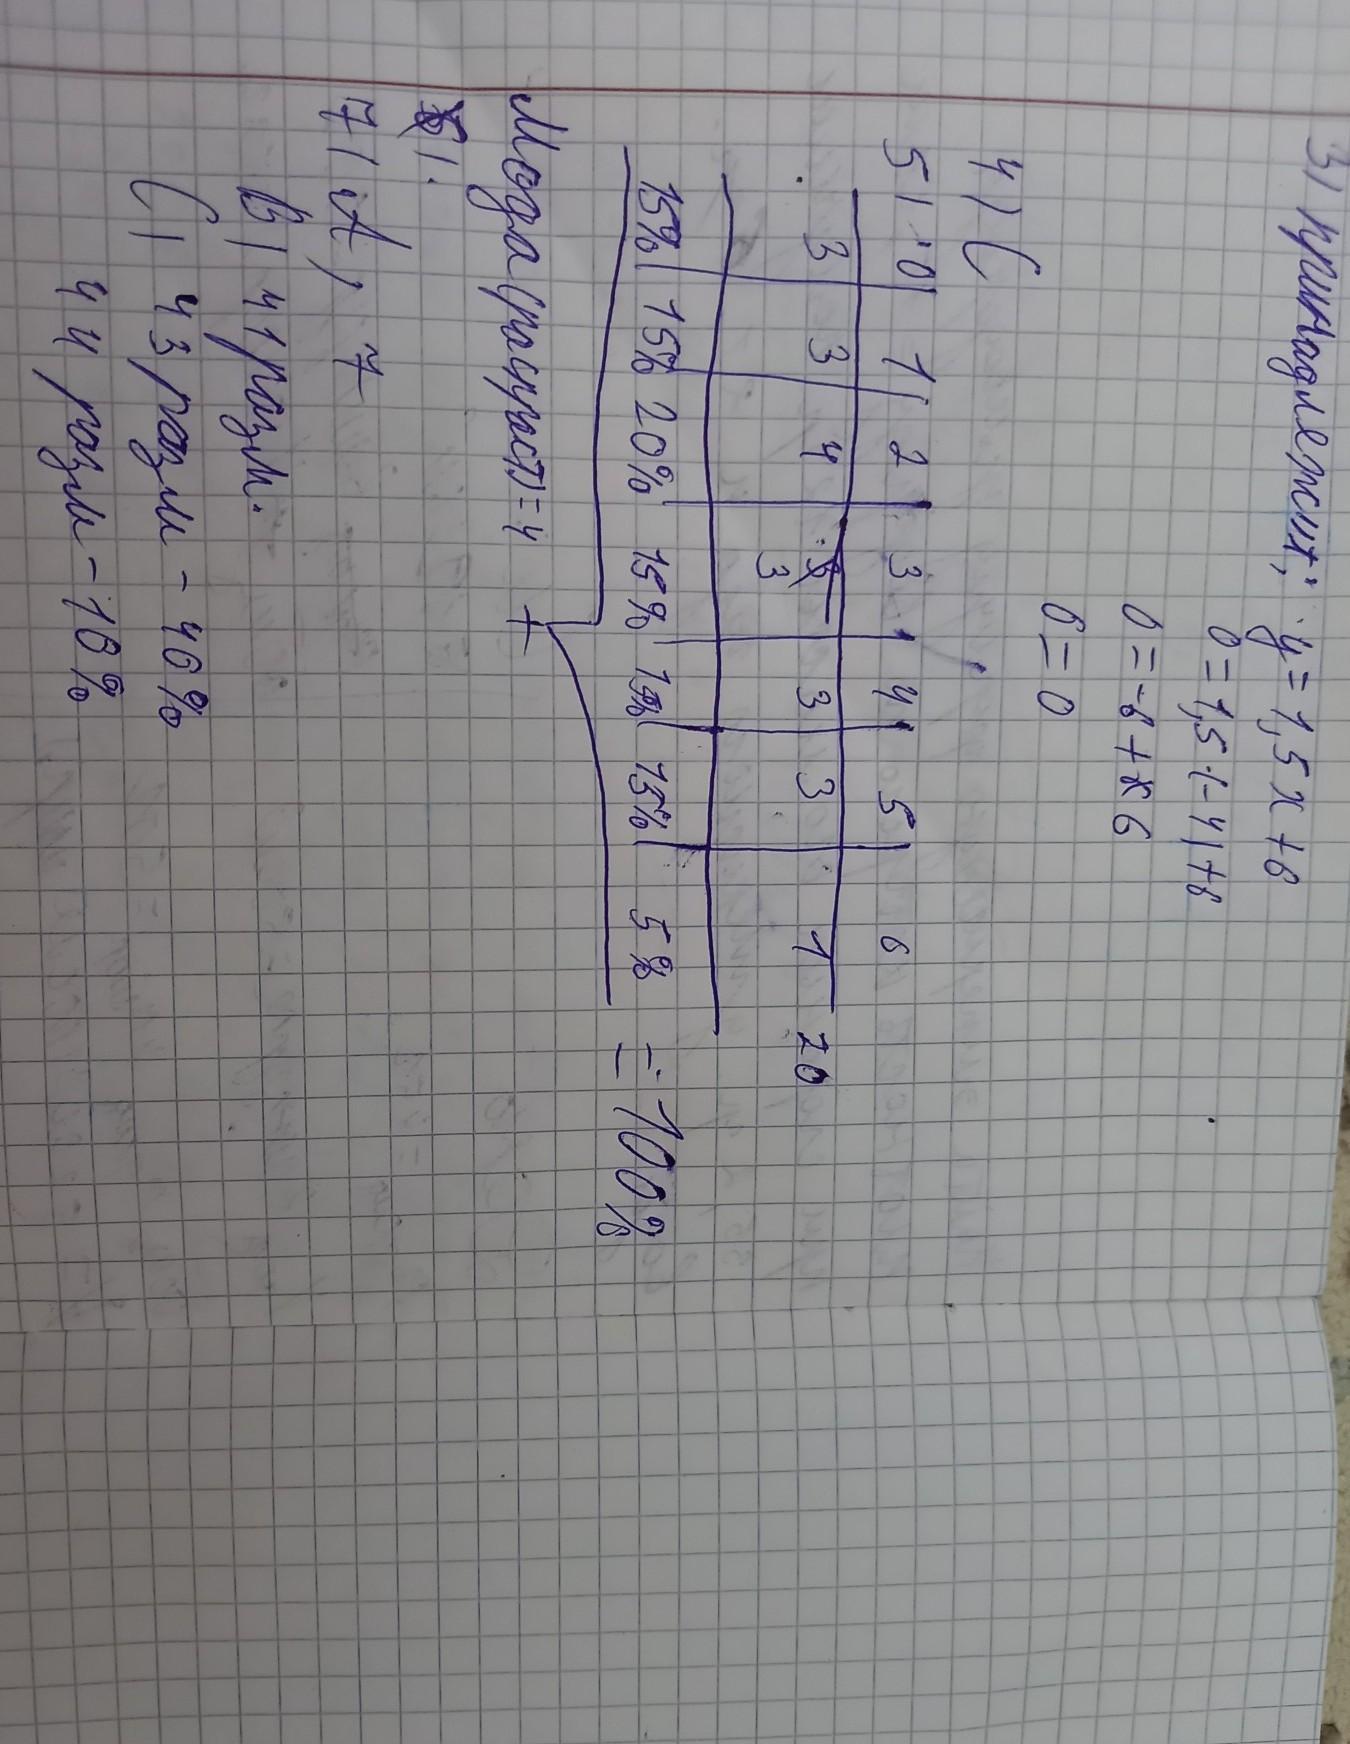 3) принадлежит; y = 1,5 x + 6
0 = 1,5 · (-4) + 6
0 = -6 + 6
0 = 0
4) C
5) 0 | 1 | 2 | 3 | 4 | 5 | 6
3 3 4 3 3 3 1 20
15% | 15% 20% | 15% | 15% | 15% | 5% = 100%
Мода (распрост) = 4
7) A) 7
B) 41 разм.
C) 43 разм - 46%
44 разм - 16%